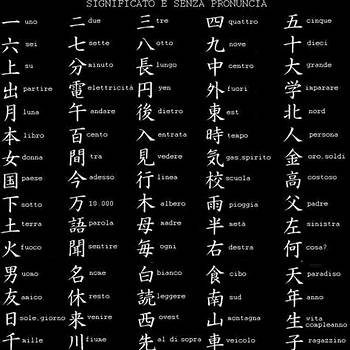 SIGNIFICATO E SENZA PRONUNCIA
一 uno 二 due 三 tre 四 quattro 五 cinque
六 sei 七 sette 八 otto 九 nove 十 dieci
上 su 分 minuto 長 lungo 中 centro 大 grande
出 partire 電 elettricità 円 yen 外 fuori 学 imparare
月 luna 午 andare 後 dietro 東 est 北 nord
本 libro 百 cento 入 entrata 時 tempo 人 persona
女 donna 間 tra 見 vedere 気 gas.spirito 金 oro.soldi
国 paese 今 adesso 行 linea 校 scuola 高 costoso
下 sotto 万 10.000 木 albero 雨 pioggia 父 padre
土 terra 語 parola 母 madre 半 metà 左 sinistra
火 fuoco 聞 sentire 毎 ogni 右 destra 何 cosa?
男 uomo 名 nome 白 bianco 食 cibo 天 paradiso
友 amico 休 resto 読 leggere 南 sud 年 anno
日 sole.giorno 来 venire 西 ovest 山 montagna 生 vita compleanno
千 mille 川 fiume 先 al di sopra 車 veicolo 子 ragazzino